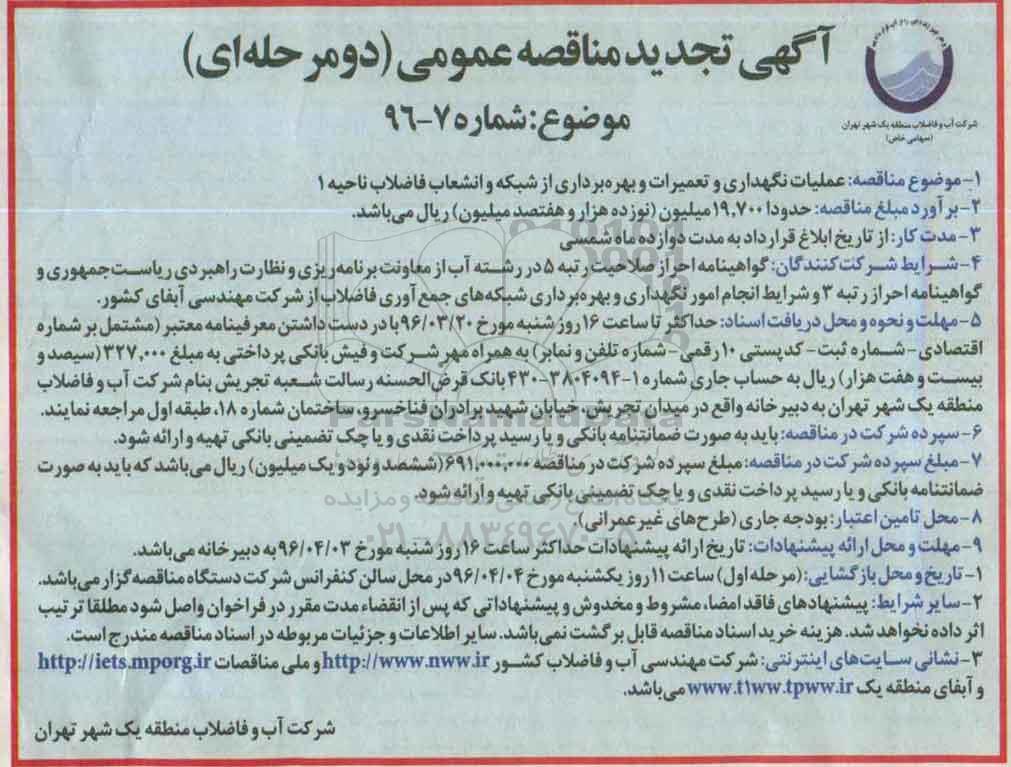 آگهی تجدید مناقصه عمومی (دو مرحله‌ای)
موضوع: شماره ۷-۹۶
شرکت آب و فاضلاب منطقه یک شهر تهران
(سهامی خاص)
۱- موضوع مناقصه: عملیات نگهداری و تعمیرات و بهره‌برداری از شبکه و انشعاب فاضلاب ناحیه ۱
۲- برآورد مبلغ مناقصه: حدودا ۱۹,۷۰۰ میلیون (نوزده هزار و هفتصد میلیون) ریال می‌باشد.
۳- مدت کار: از تاریخ ابلاغ قرارداد به مدت دوازده ماه شمسی
۴- شرایط شرکت‌کنندگان: گواهینامه احراز صلاحیت رتبه ۵ در رشته آب از معاونت برنامه‌ریزی و نظارت راهبردی ریاست‌جمهوری و
گواهینامه احراز رتبه ۳ و شرایط انجام امور نگهداری و بهره‌برداری شبکه‌های جمع‌آوری فاضلاب از شرکت مهندسی آبفای کشور.
۵- مهلت و نحوه و محل دریافت اسناد: حداکثر تا ساعت ۱۶ روز شنبه مورخ ۹۶/۰۳/۲۰ با در دست داشتن معرفینامه معتبر (مشتمل بر شماره
اقتصادی - شماره ثبت - کدپستی ۱۰ رقمی - شماره تلفن و نمابر) به همراه مهر شرکت و فیش بانکی پرداختی به مبلغ ۳۲۷,۰۰۰ (سیصد و
بیست و هفت هزار) ریال به حساب جاری شماره ۱-۳۸۰۴۰۹۴-۴۳۰ بانک قرض‌الحسنه رسالت شعبه تجریش بنام شرکت آب و فاضلاب
منطقه یک شهر تهران به دبیرخانه واقع در میدان تجریش، خیابان شهید برادران فناخسرو، ساختمان شماره ۱۸، طبقه اول مراجعه نمایند.
۶- سپرده شرکت در مناقصه: باید به صورت ضمانتنامه بانکی و یا رسید پرداخت نقدی و یا چک تضمینی بانکی تهیه و ارائه شود.
۷- مبلغ سپرده شرکت در مناقصه: مبلغ سپرده شرکت در مناقصه ۶۹۱,۰۰۰,۰۰۰ (ششصد و نود و یک میلیون) ریال می‌باشد که باید به صورت
ضمانتنامه بانکی و یا رسید پرداخت نقدی و یا چک تضمینی بانکی تهیه و ارائه شود.
۸- محل تامین اعتبار: بودجه جاری (طرح‌های غیرعمرانی).
۹- مهلت و محل ارائه پیشنهادات: تاریخ ارائه پیشنهادات حداکثر ساعت ۱۶ روز شنبه مورخ ۹۶/۰۴/۰۳ به دبیرخانه می‌باشد.
۱- تاریخ و محل بازگشایی: (مرحله اول) ساعت ۱۱ روز یکشنبه مورخ ۹۶/۰۴/۰۴ در محل سالن کنفرانس شرکت دستگاه مناقصه‌گزار می‌باشد.
۲- سایر شرایط: پیشنهادهای فاقد امضاء، مشروط و مخدوش و پیشنهاداتی که پس از انقضاء مدت مقرر در فراخوان واصل شود مطلقا ترتیب
اثر داده نخواهد شد. هزینه خرید اسناد مناقصه قابل برگشت نمی‌باشد. سایر اطلاعات و جزئیات مربوطه در اسناد مناقصه مندرج است.
۳- نشانی سایت‌های اینترنتی: شرکت مهندسی آب و فاضلاب کشور http://www.nww.ir و ملی مناقصات http://iets.mporg.ir
و آبفای منطقه یک www.t1ww.tpww.ir می‌باشد.
شرکت آب و فاضلاب منطقه یک شهر تهران
ParsNamadData
۰۲۱-۸۸۳۴۹۶۷۰-۵